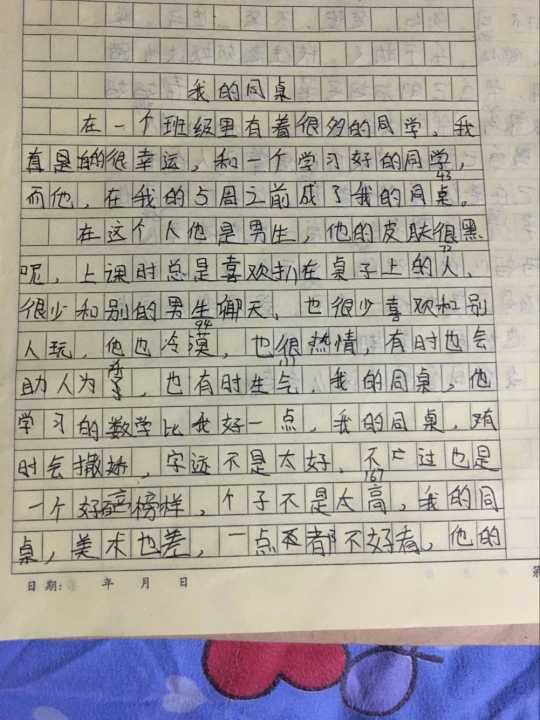 我的同桌
在一个班级里有着很多的同学，我
真是的很幸运，和一个学习好的同学，
43
而他，在我的5周之前成了我的同桌。
在这个人他是男生，他的皮肤很黑
呢，上课时总是喜欢扒在桌子上的人，
很少和别的男生聊天，也很少喜欢和别
94
人玩，他也冷漠，也很热情，有时也会
助人为乐，也有时生气，我的同桌，他
学习的数学比我好一点，我的同桌，有
时会撒娇，字迹不是太好，不过也是
167
一个好榜样，个子不是太高，我的同
桌，美术也差，一点都不好看，他的
日期： 年 月 日
第